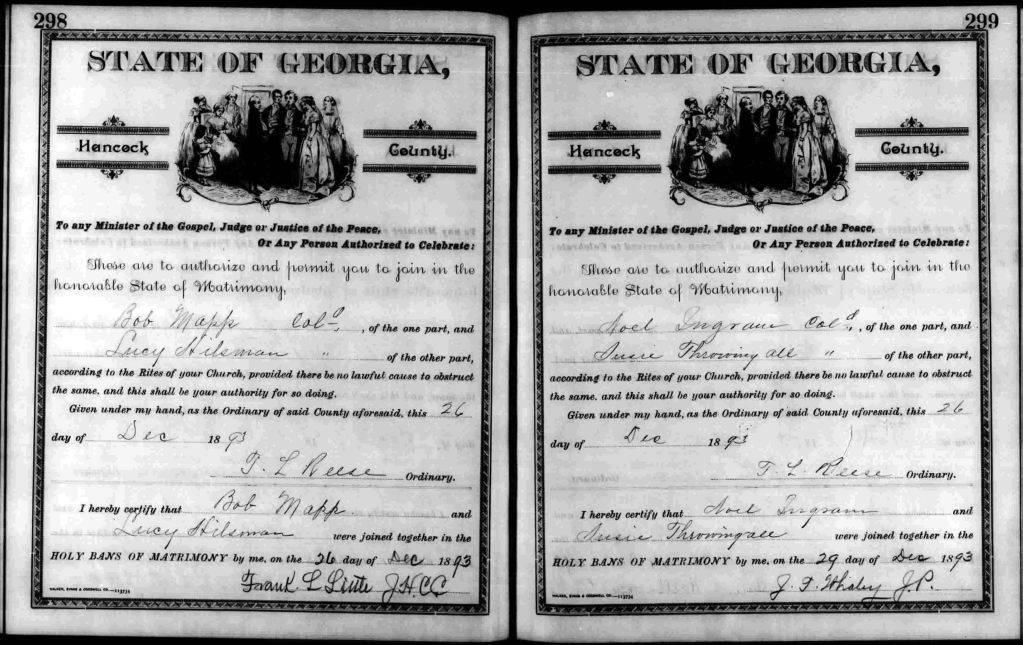 298
STATE OF GEORGIA,
Hancock County.
To any Minister of the Gospel, Judge or Justice of the Peace,
Or Any Person Authorized to Celebrate:
These are to authorize and permit you to join in the
honorable State of Matrimony,
Bob Mapp Cold, , of the one part, and
Lucy Hilsman " of the other part,
according to the Rites of your Church, provided there be no lawful cause to obstruct
the same, and this shall be your authority for so doing.
Given under my hand, as the Ordinary of said County aforesaid, this 26
day of Dec 1893
T. L Reese Ordinary.
I hereby certify that Bob Mapp and
Lucy Hilsman were joined together in the
HOLY BANS OF MATRIMONY by me, on the 26 day of Dec 1893
Frank L Little J.H.C.C
299
STATE OF GEORGIA,
Hancock County.
To any Minister of the Gospel, Judge or Justice of the Peace,
Or Any Person Authorized to Celebrate:
These are to authorize and permit you to join in the
honorable State of Matrimony,
Noel Ingram Cold, , of the one part, and
Susie Throwing all " of the other part,
according to the Rites of your Church, provided there be no lawful cause to obstruct
the same, and this shall be your authority for so doing.
Given under my hand, as the Ordinary of said County aforesaid, this 26
day of Dec 1893
T. L. Reese Ordinary.
I hereby certify that Noel Ingram and
Susie Throwingall were joined together in the
HOLY BANS OF MATRIMONY by me, on the 29 day of Dec 1893
J. T. Whaley J.P.